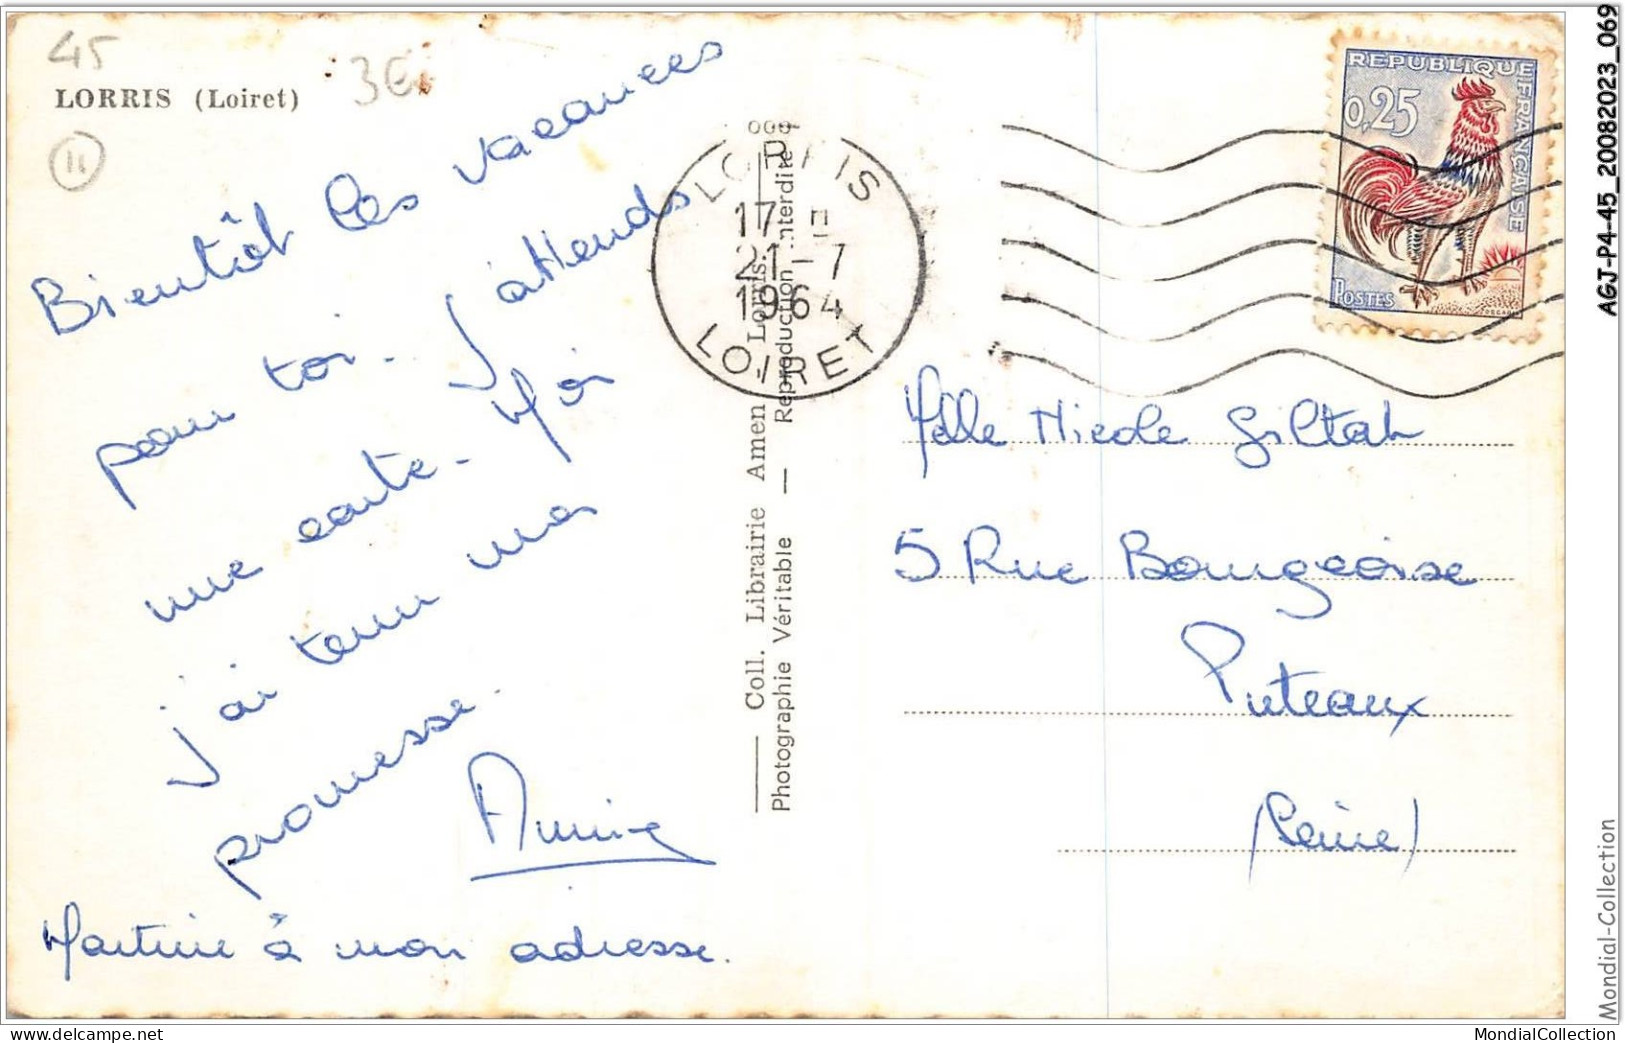 45
LORRIS (Loiret)
3€
11
Bientôt les vacances
pour toi. J'attends
une carte. Moi
j'ai tenu ma
promesse.
Martine à mon adresse.
Coll. Librairie Amen Lorris.
Photographie Véritable — Reproduction interdite
LORRIS
17 H
21-7
1964
LOIRET
REPUBLIQUE FRANCAISE
0,25
POSTES
DECARIS
Melle Nicole Giltat
5 Rue Bourgeoise
Puteaux
(Seine)
AGJ-P4-45_20082023_069
Mondial-Collection
www.delcampe.net
MondialCollection